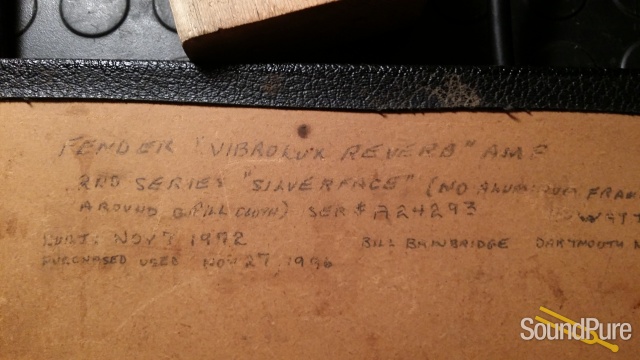 FENDER "VIBROLUX REVERB" AMP
2ND SERIES "SILVERFACE" (NO ALUMINUM FRAM
AROUND GRILL CLOTH) SER# A24293
BUILT: NOV 7 1972 BILL BAINBRIDGE DARTMOUTH N
PURCHASED USED NOV 27, 1996
SoundPure